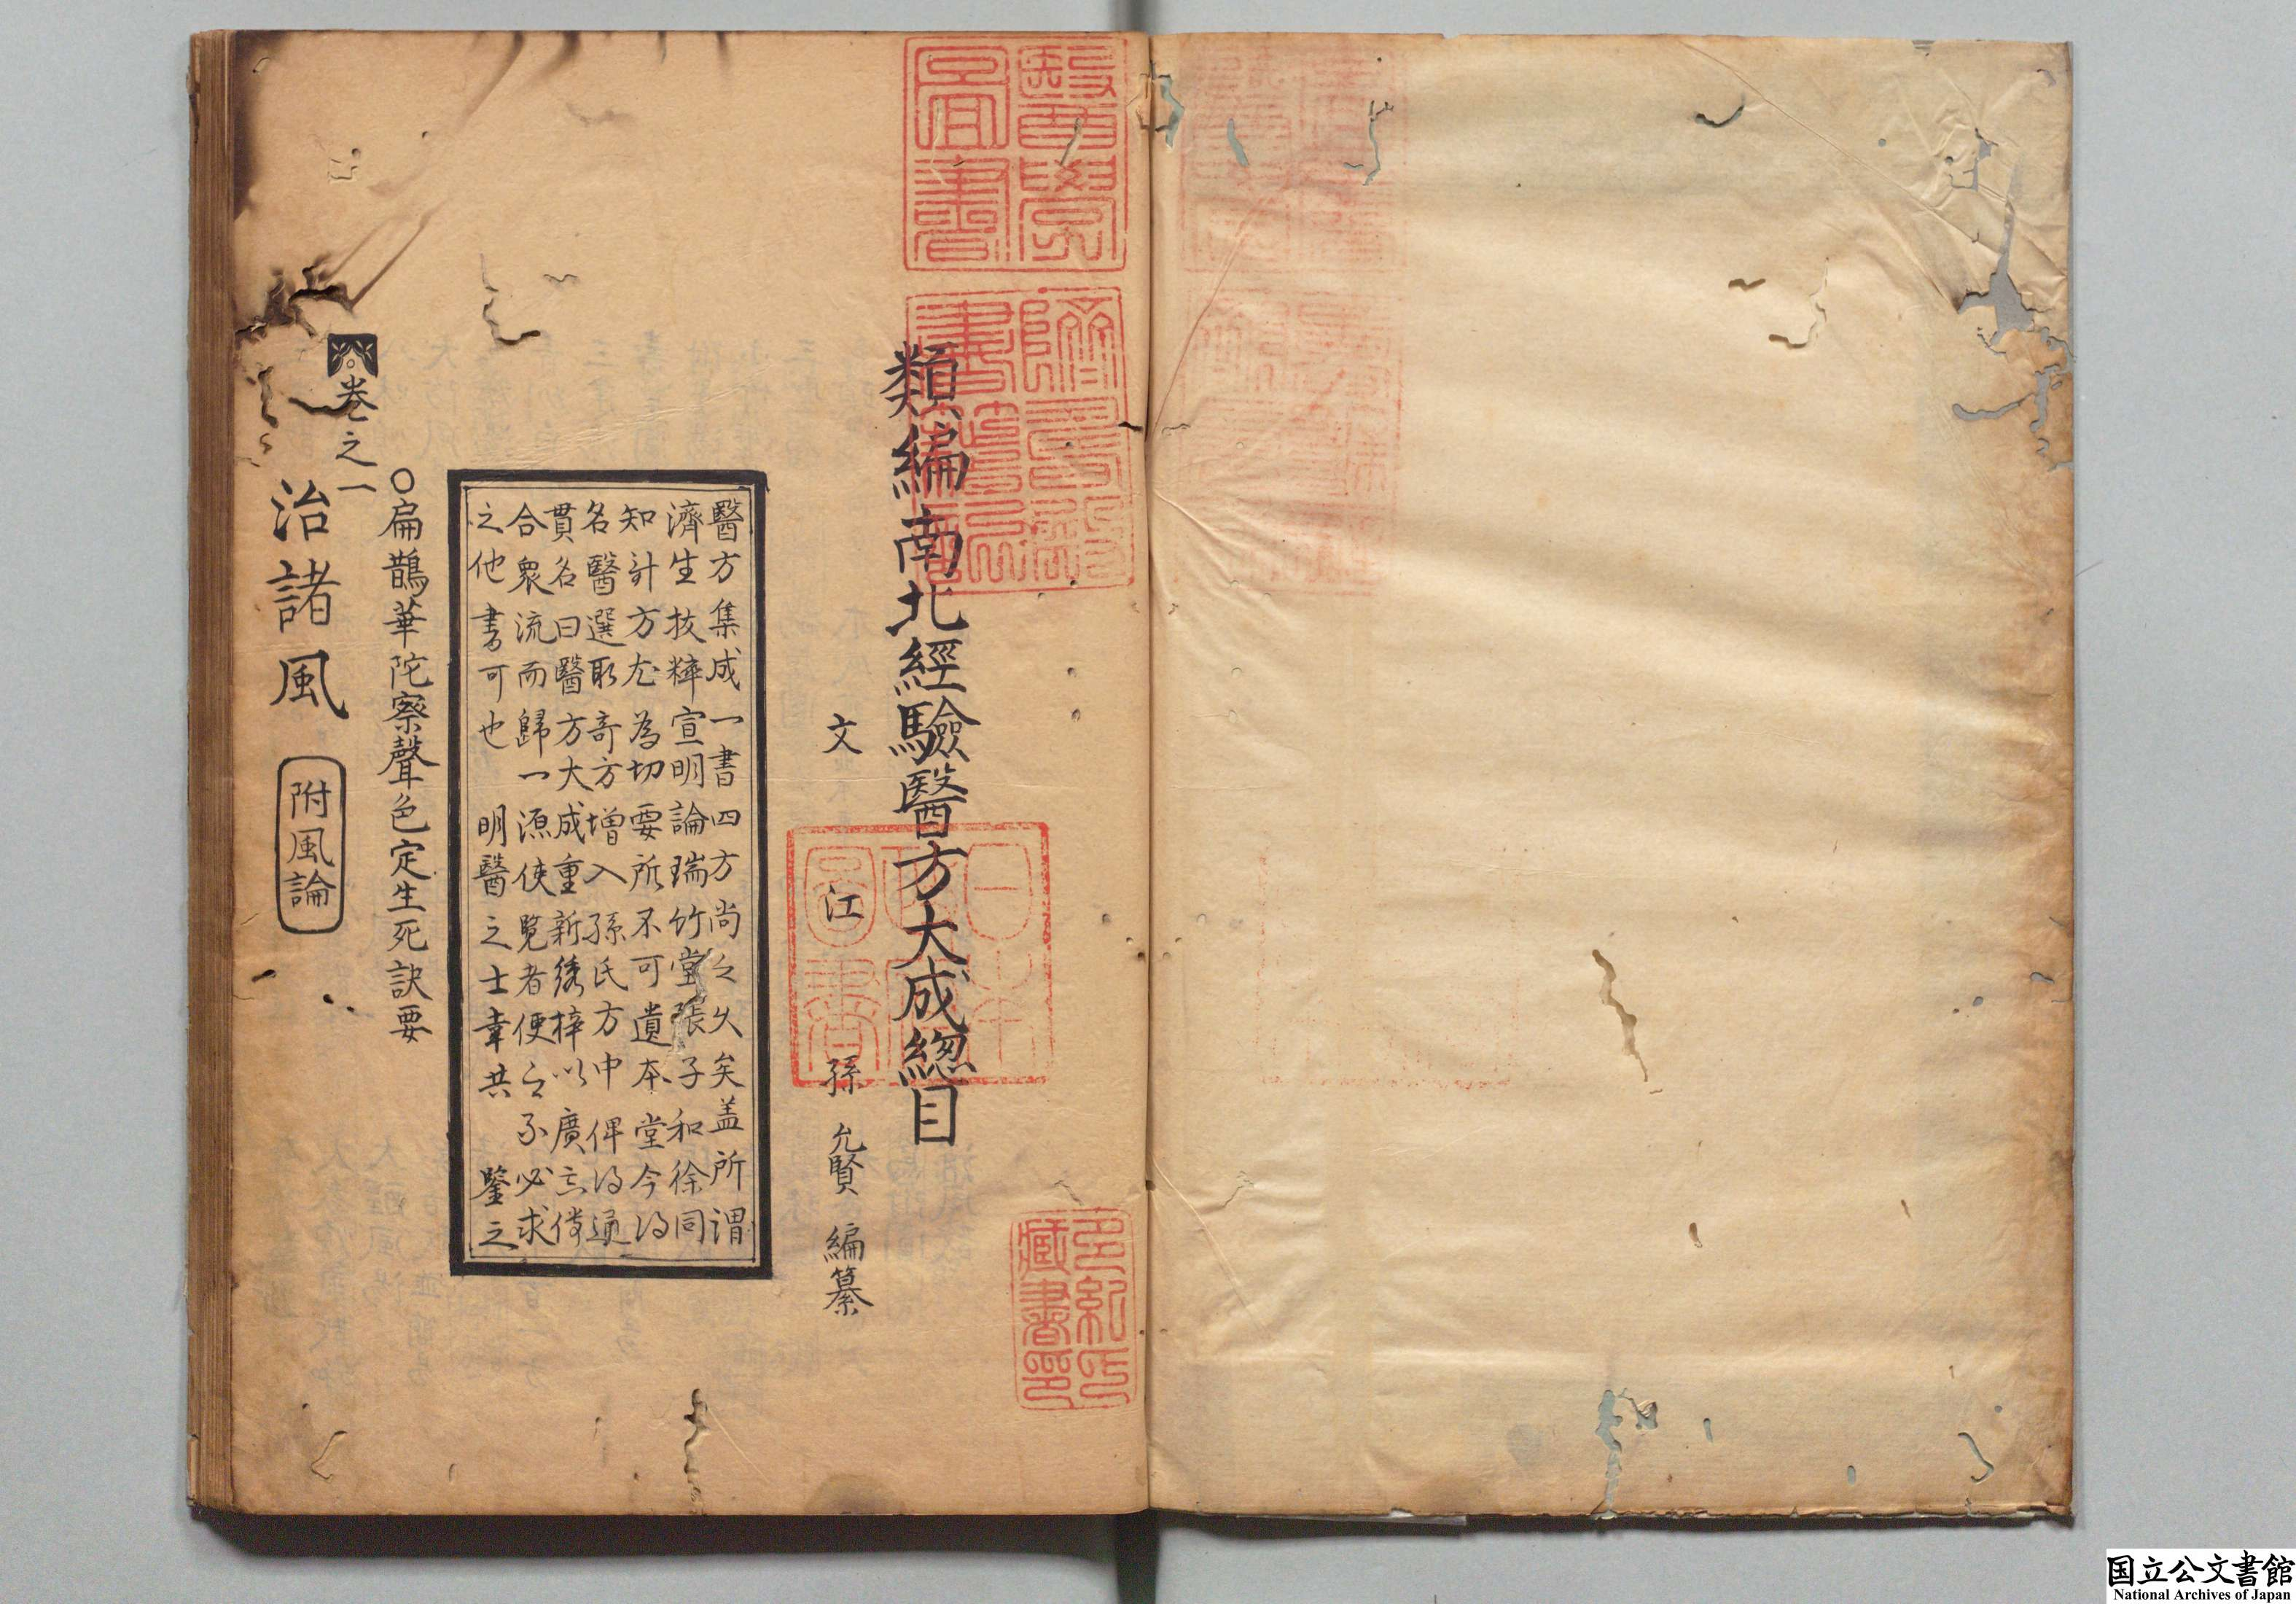 類編南北經驗醫方大成總目
文江孫允賢編纂
醫方集成一書四方尚之久矣盖所謂
濟生拔粹宣明論瑞竹堂張子和徐同
知計方尤為切要所不可遺本堂今得
名醫選取奇方增入孫氏方中俾得通
貫名曰醫方大成重新綉梓以廣其傳
合衆流而歸一源使覧者便之不必求
之他書可也 明醫之士幸共 鑒之
○扁鵲華陀察聲色定生死訣要
卷之一
治諸風 附風論
醫學圖書
躋壽殿書籍記
日本政府圖書
多紀氏藏書印
国立公文書館
National Archives of Japan